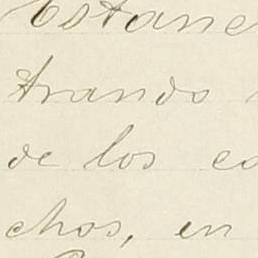 Estane
trando
de los co
chos, en